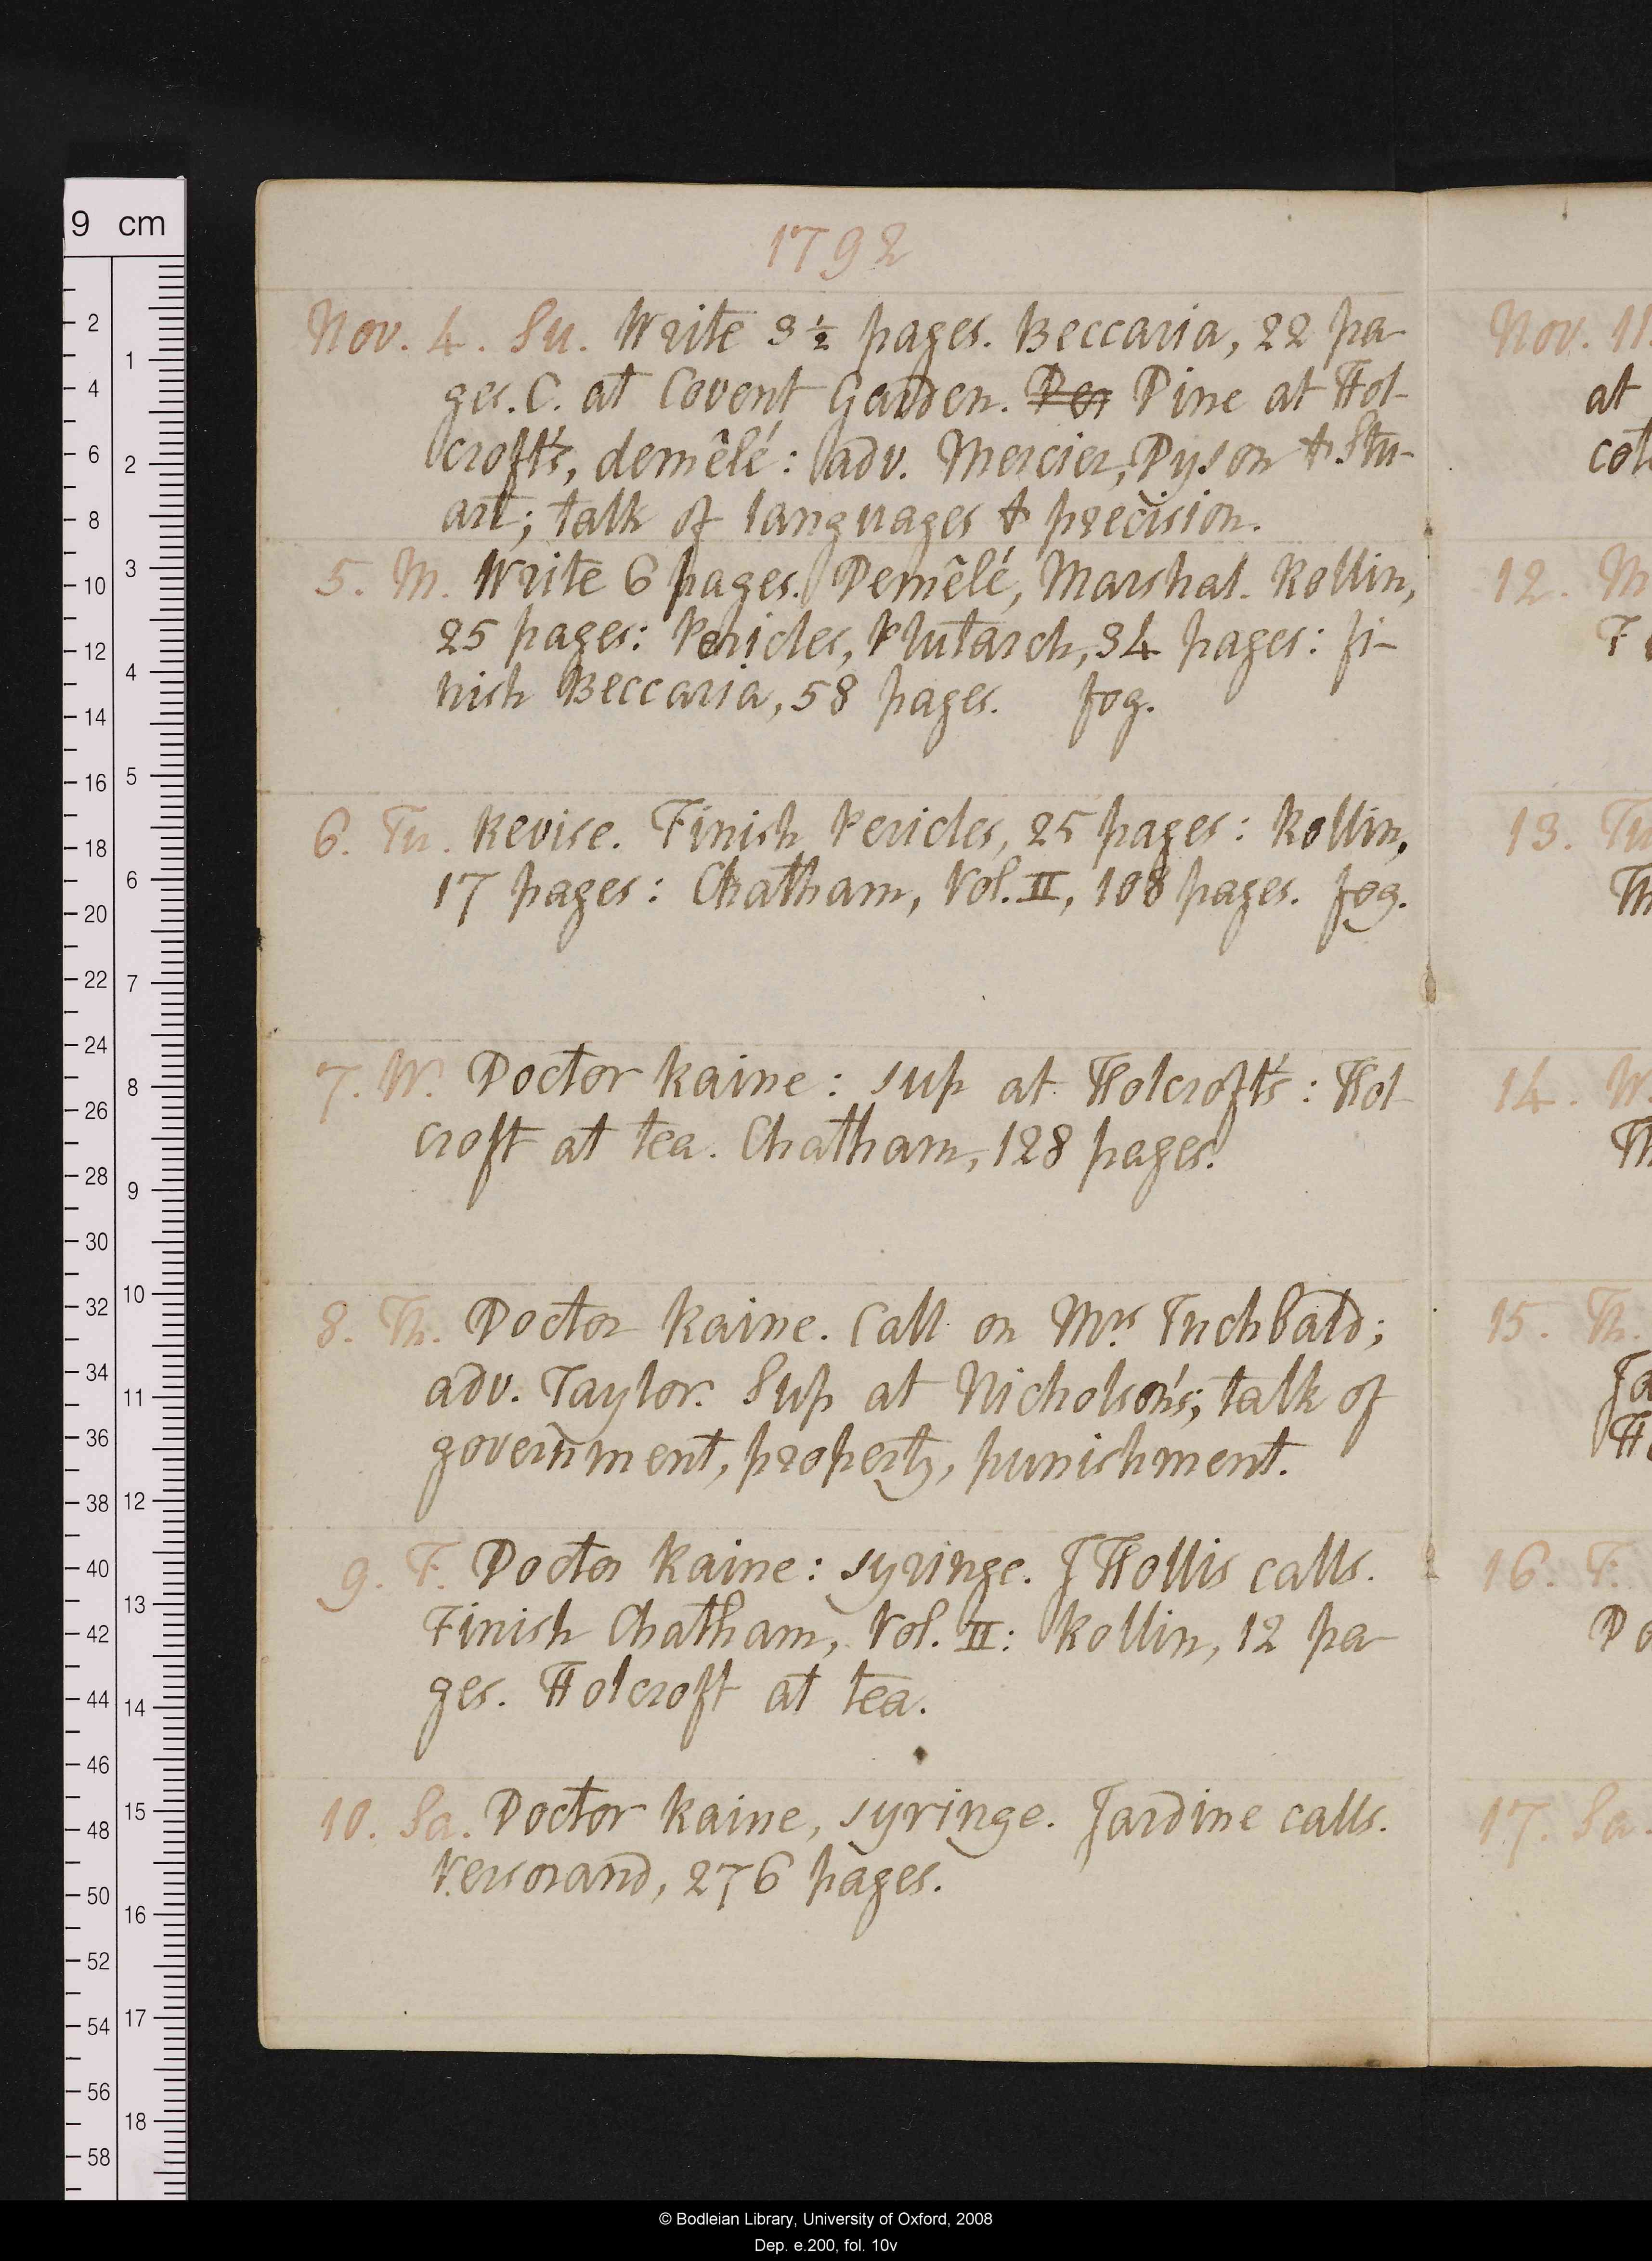 1792
Nov. 4. Su. Write 3½ pages. Beccaria, 22 pa-
ges. C. at Covent Garden. Der Dine at Hol-
croft's, demêlé: adv. Mercier, Dyson & Stu-
art; talk of languages & precision.
5. M. Write 6 pages. Demêlé, Marshal. Rollin,
25 pages: Pericles, Plutarch, 34 pages: fi-
nish Beccaria, 58 pages. fog.
6. Tu. Revise. Finish Pericles, 25 pages: Rollin,
17 pages: Chatham, Vol. II, 108 pages. fog.
7. W. Doctor Kaine: sup at Holcroft's: Hol
croft at tea. Chatham, 128 pages.
8. Th. Doctor Kaine. Call on Mrs Inchbald;
adv. Taylor. Sup at Nicholson's; talk of
government, property, punishment.
9. F. Doctor Kaine: syringe. J Hollis calls.
Finish Chatham, Vol. II: Rollin, 12 pa-
ges. Holcroft at tea.
10. Sa. Doctor Kaine, syringe. Jardine calls.
Versorand, 276 pages.
Nov. 11.
at
cot
12. M
F
13. Tu
Th
14. W.
Th
15. Th.
Ja
Ho
16. F.
Do
17. Sa.
9 cm
2
4
6
8
10
12
14
16
18
20
22
24
26
28
30
32
34
36
38
40
42
44
46
48
50
52
54
56
58
1
2
3
4
5
6
7
8
9
10
11
12
13
14
15
16
17
18
© Bodleian Library, University of Oxford, 2008
Dep. e.200, fol. 10v